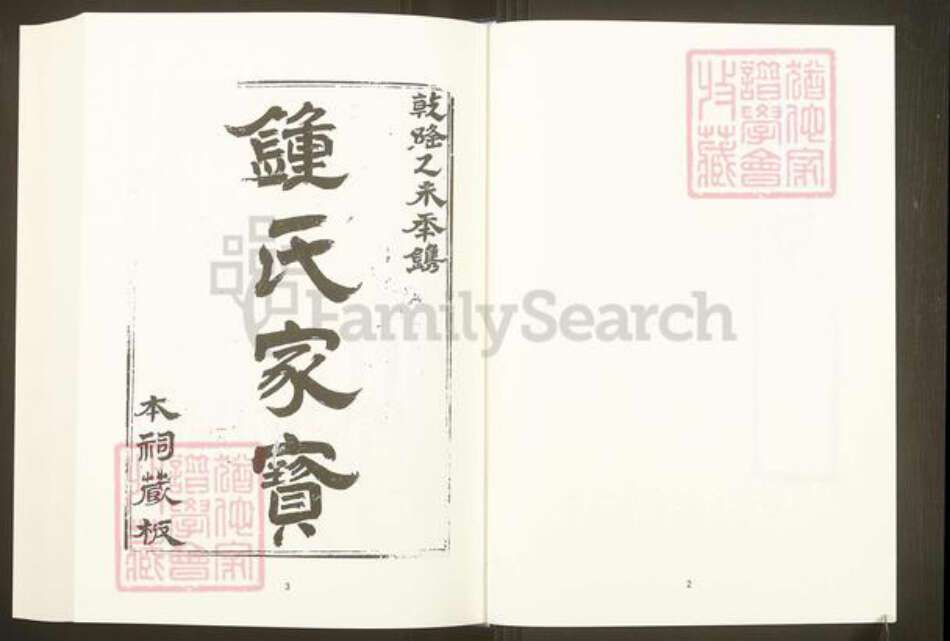 乾隆乙未年鐫
鍾氏家寶
本祠藏板
3
猶他家
譜學會
收藏
2
猶他家
譜學會
收藏
FamilySearch